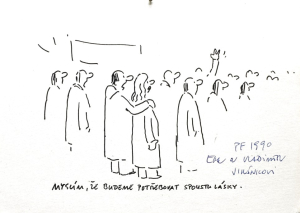 MYSLÍM, ŽE BUDEME POTŘEBOVAT SPOUSTU LÁSKY.
PF 1990
EVA a VLADIMÍR
JIRÁNKOVI